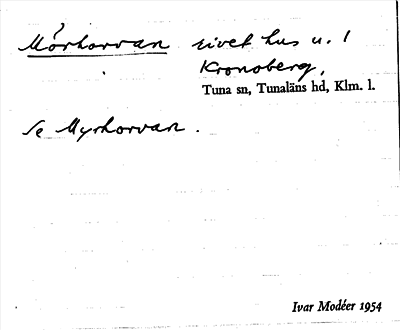 Mörhorvan rivet hus u. 1
Kronoberg,
Tuna sn, Tunaläns hd, Klm. l.
Se Myrhorvan.
Ivar Modéer 1954